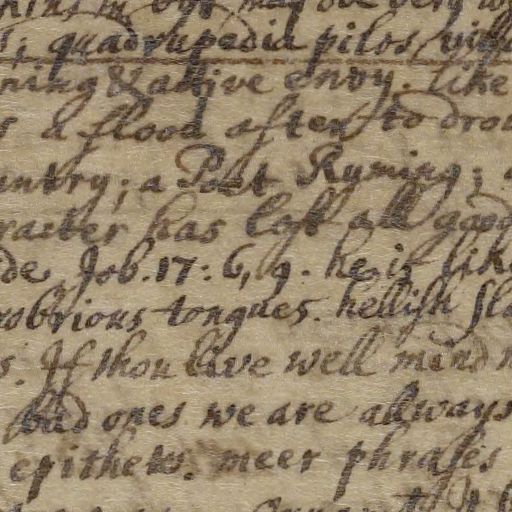 may
quadrupedia pilos
ning & active envy. like
s a flood after to drow
untry; a Poet Ryming;
racter has lost all good
de Job. 17: 6, 9. he is like
robrious tongues. hellish sla
s. If thou live well mind n
bad ones we are allways
epithets. meer phrases